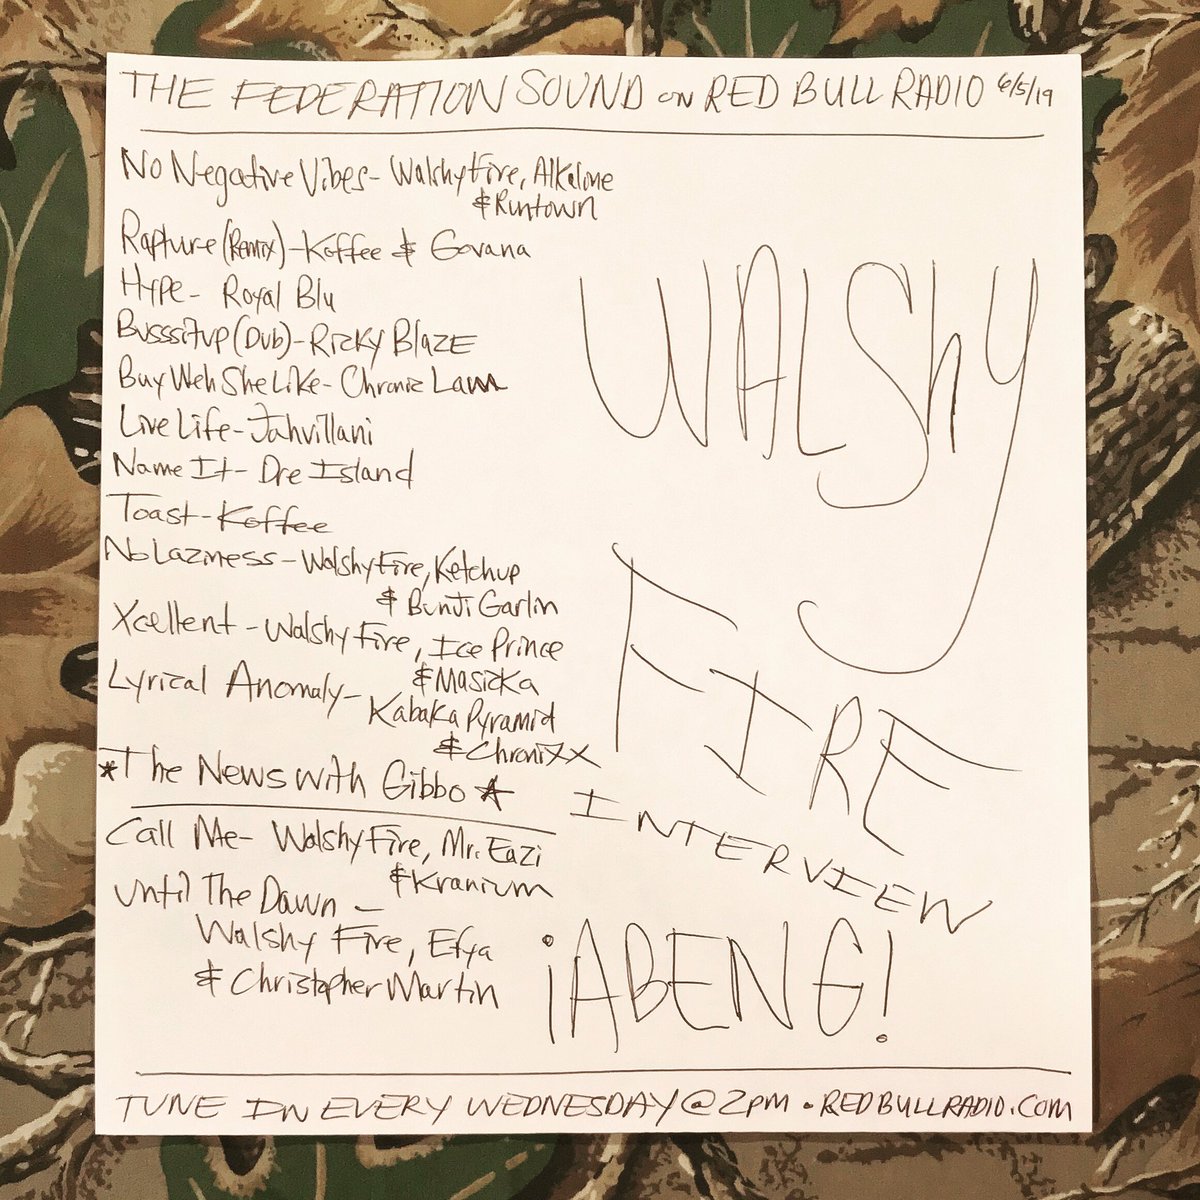 THE FEDERATION SOUND ON RED BULL RADIO 6/5/19
No Negative Vibes- Walshy Fire, Alkaline
& Runtown
Rapture (Remix) - Koffee & Govana
Hype- Royal Blu
Busssitup (Dub)- Rizky Blaze
Buy Weh She Like- Chronic Law
Live Life- Jahvillani
Name It- Dre Island
Toast- Koffee
No Laziness - Walshy Fire, Ketchup
& Bunji Garlin
Xcellent - Walshy Fire, Ice Prince
& Masicka
Lyrical Anomaly- Kabaka Pyramid
& Chronixx
*The News with Gibbo*
Call Me- Walshy Fire, Mr. Eazi
& Kranium
Until The Dawn -
Walshy Fire, Efya
& Christopher Martin
WALShy
FIRE
INTERVIEW
¡ABENG!
TUNE IN EVERY WEDNESDAY @ 2PM • REDBULLRADIO.COM